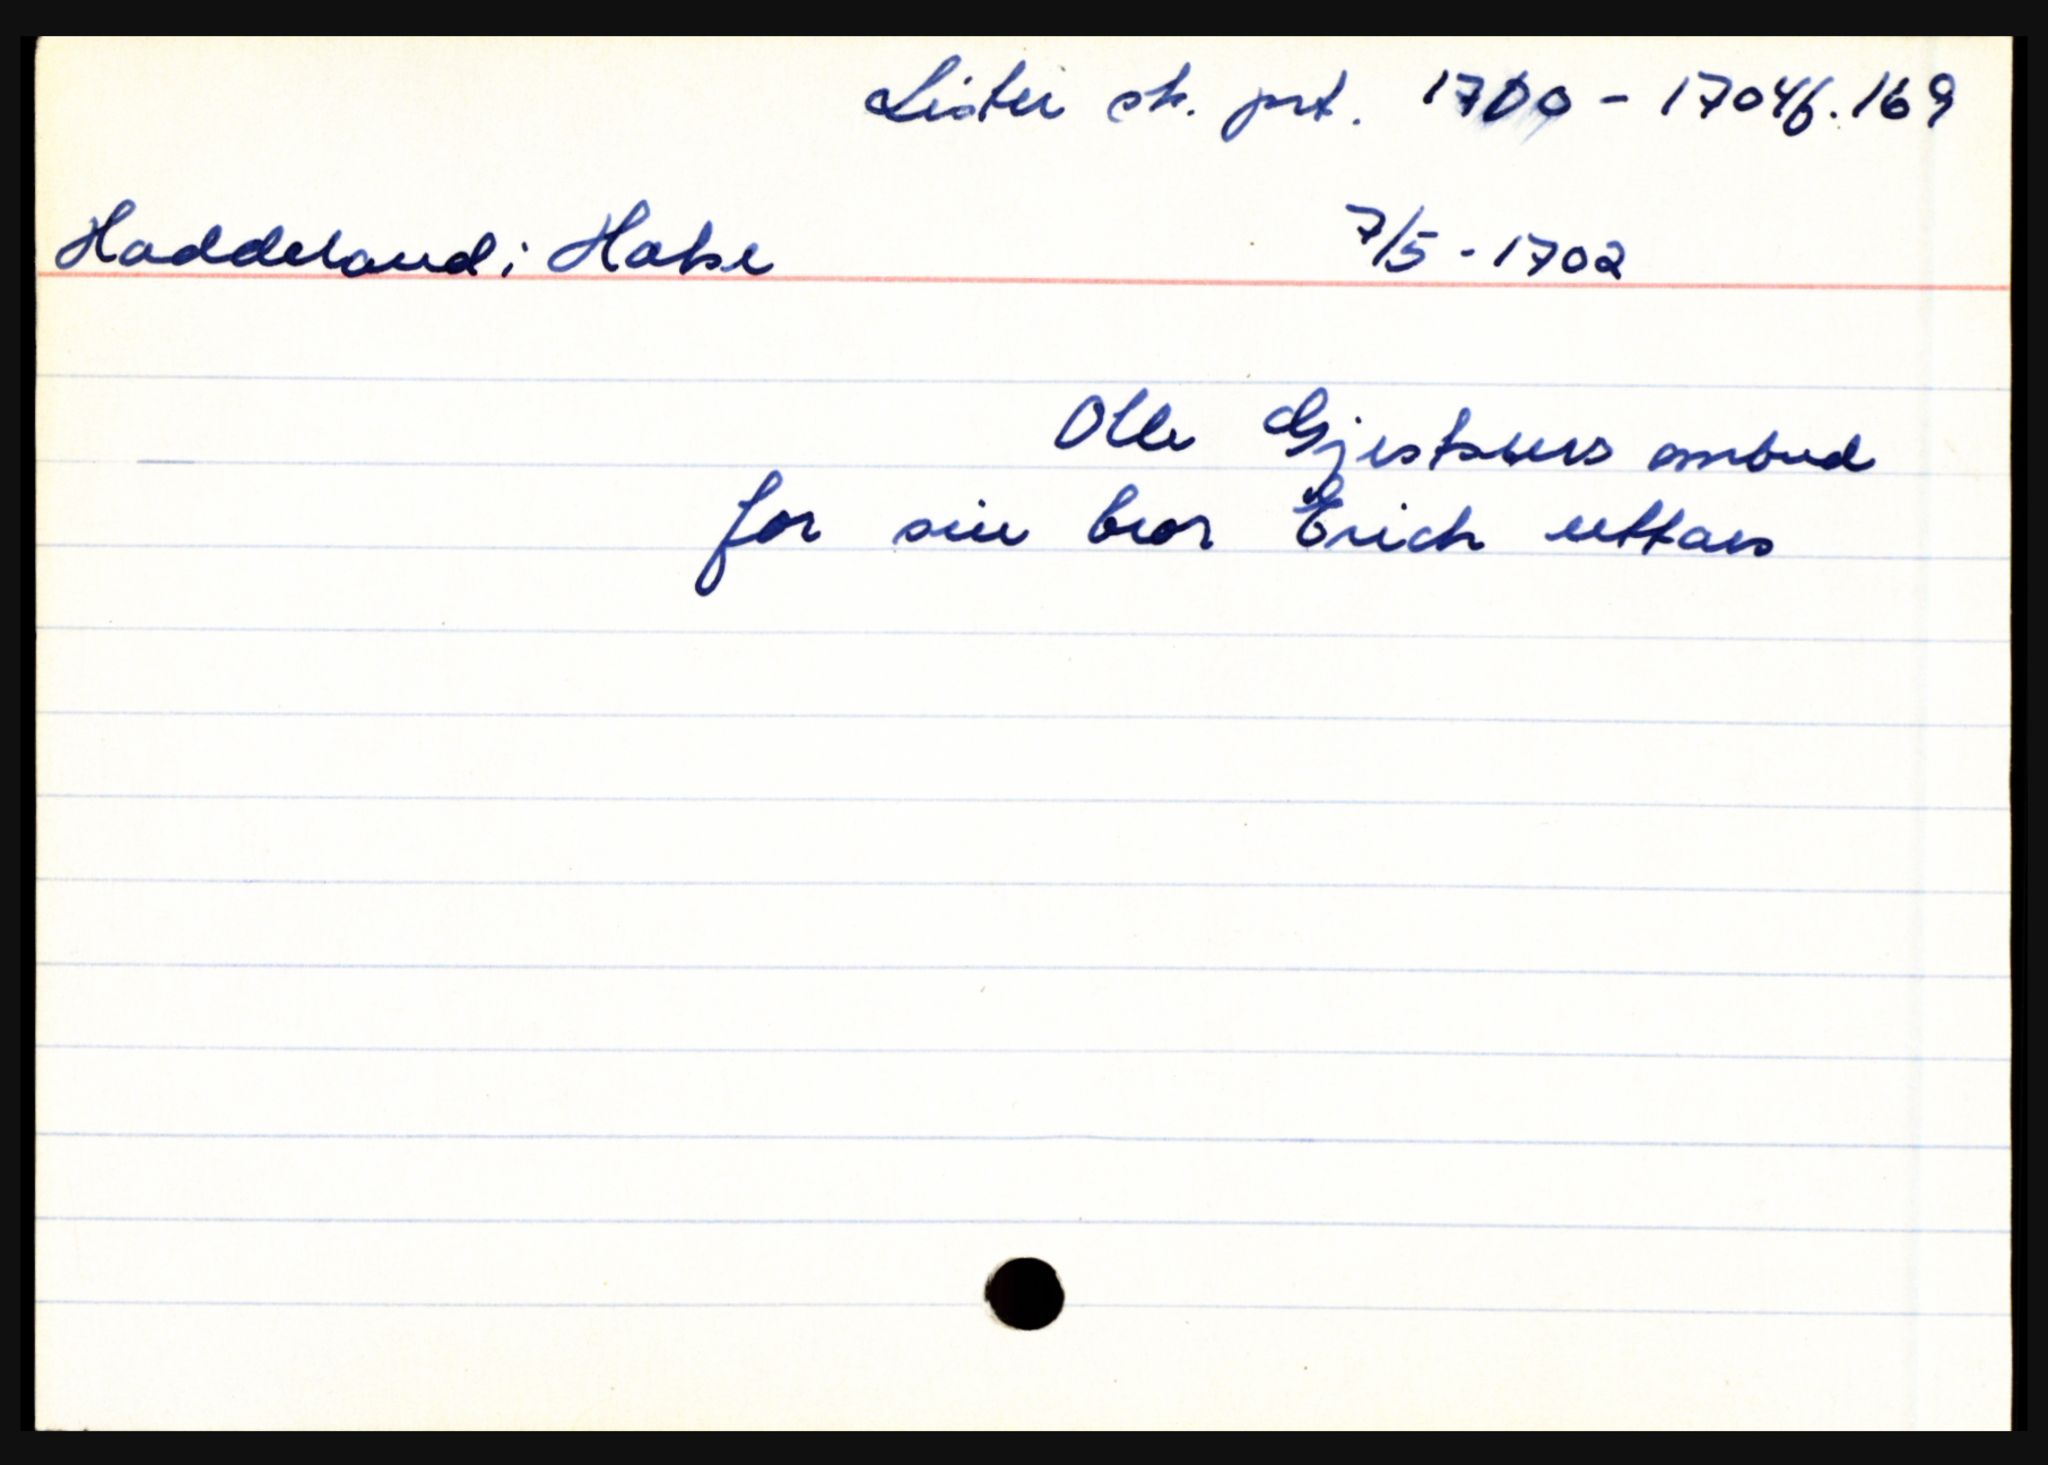 Lister sk. prt. 1700 - 1704 f. 169
Haddeland i Hakse 7/5 - 1702
Olle Gjestsens ombud
for sin bror Erich uttas